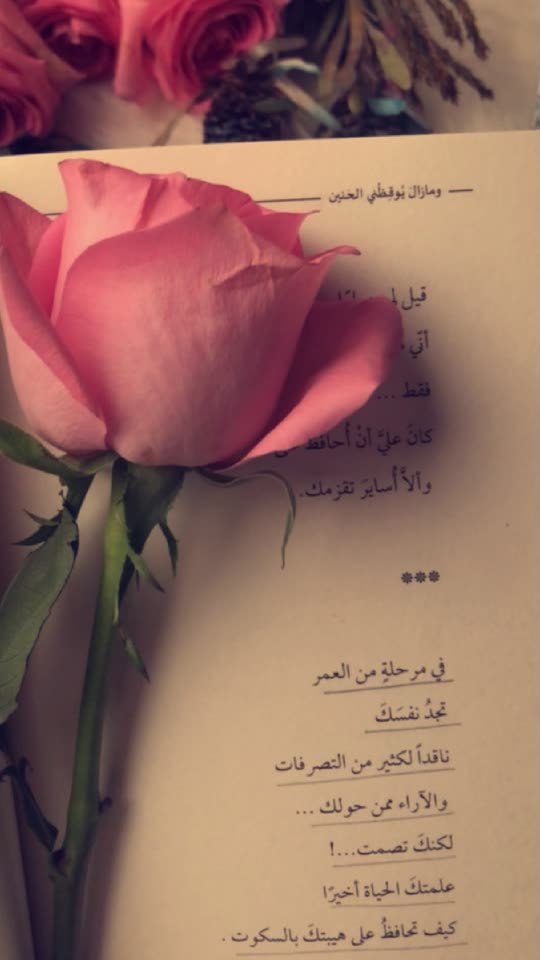 ومازال يُوقِظُني الحنين
قيل
أنّي
فقط ...
كانَ عليَّ أنْ أُحافظ
وألاَّ أُسايرَ تقزمك.
***
في مرحلةٍ من العمر
تجدُ نفسَكَ
ناقداً لكثير من التصرفات
والآراء ممن حولك ...
لكنكَ تصمت...!
علمتكَ الحياة أخيرًا
كيف تحافظُ على هيبتكَ بالسكوت .